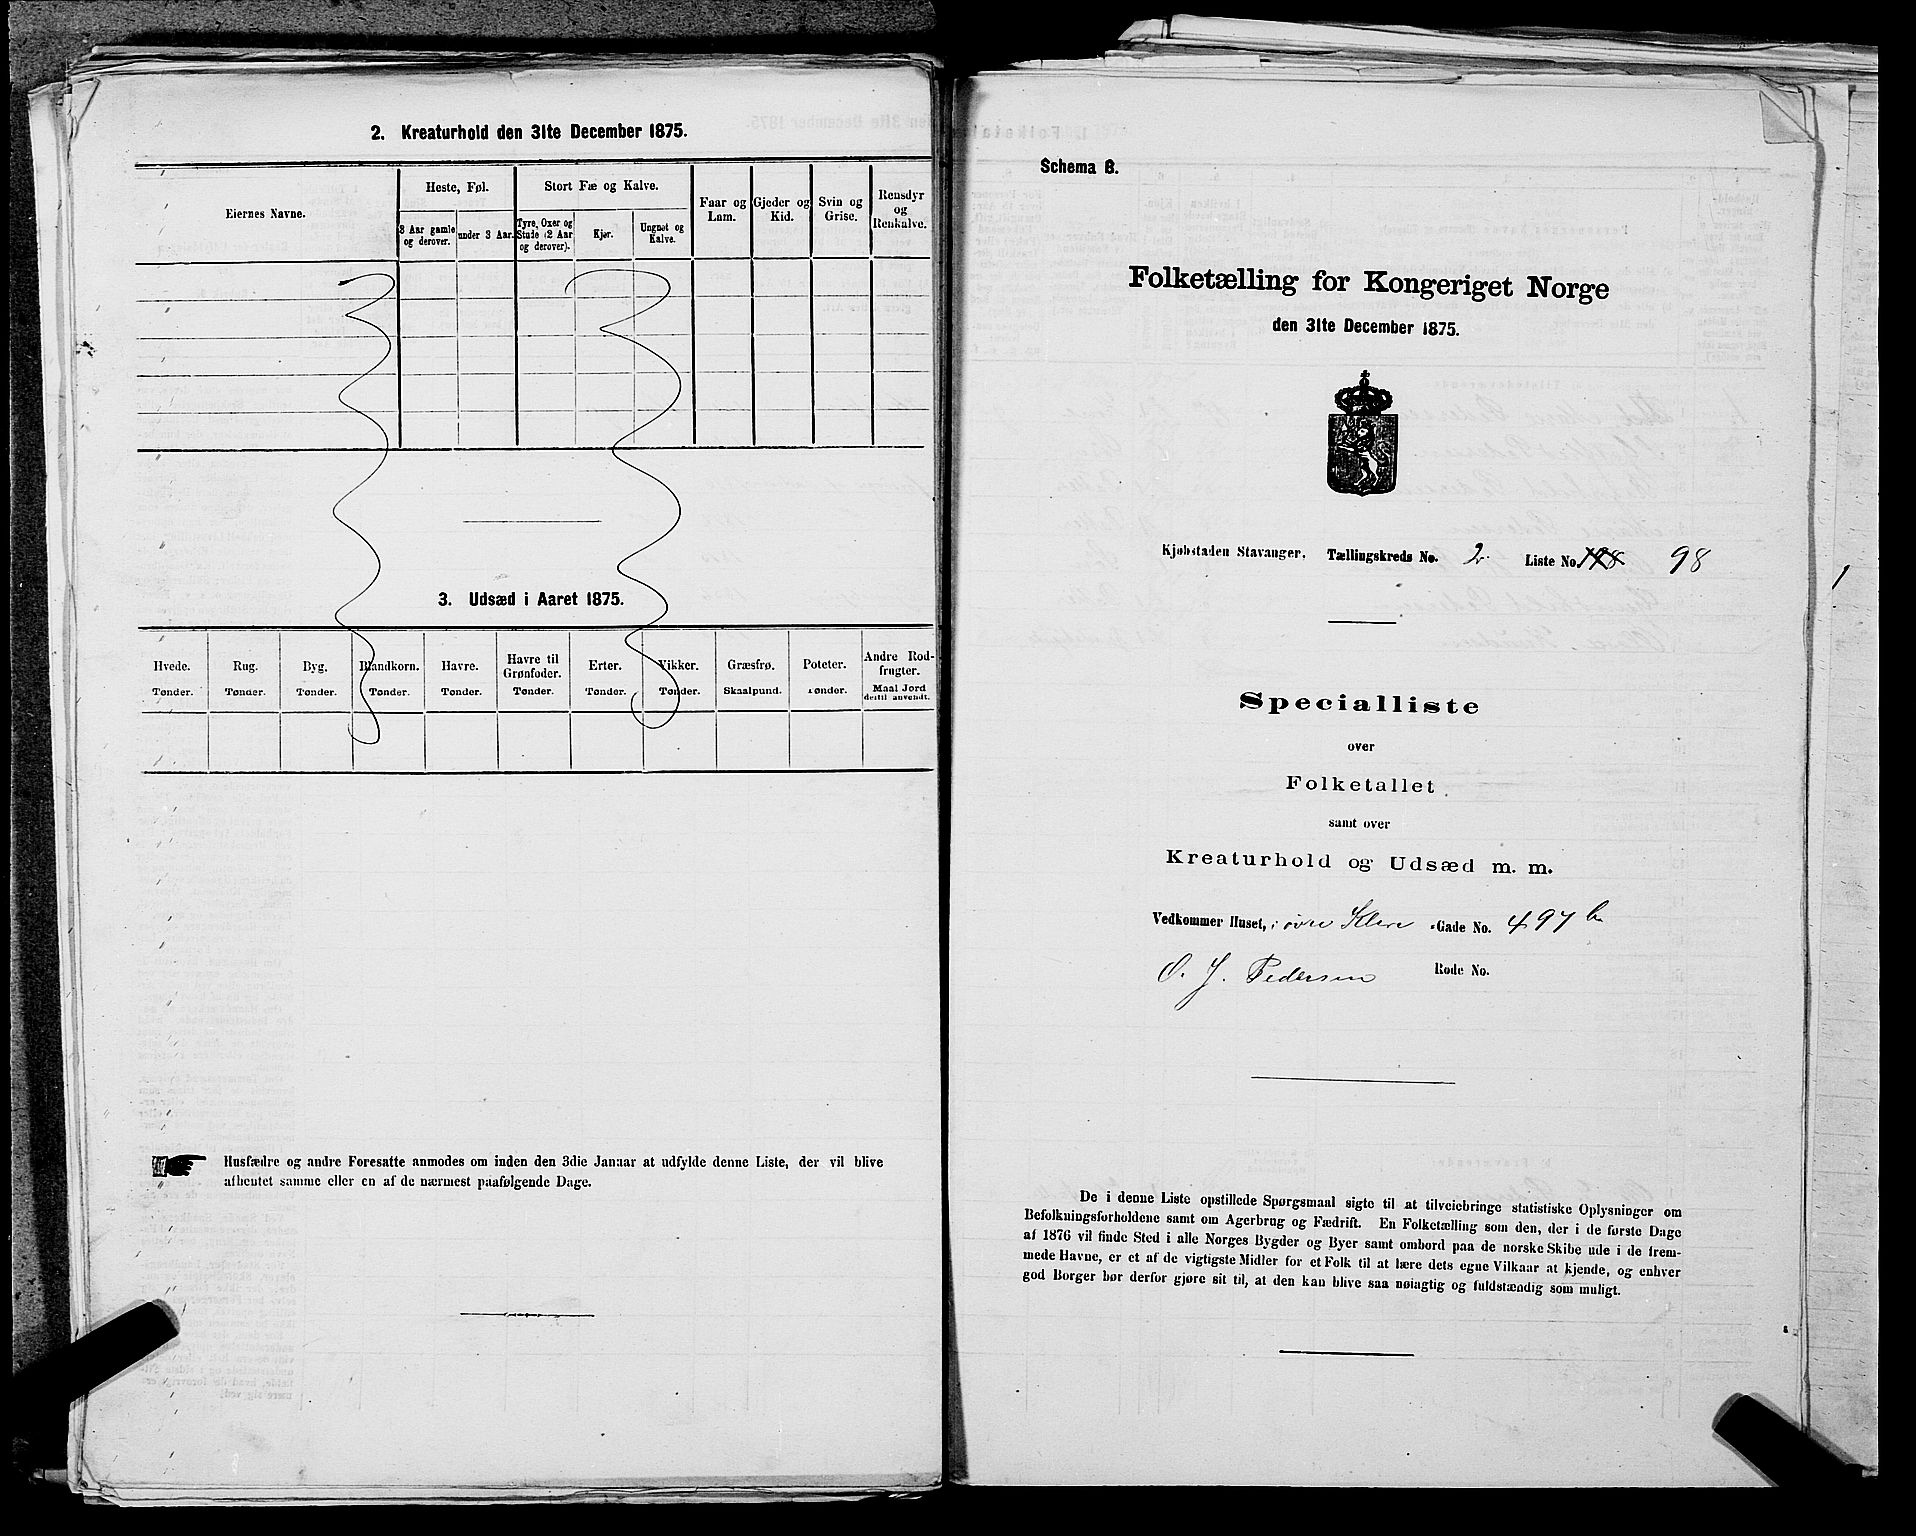 2. Kreaturhold den 31te December 1875.
Eiernes Navne.
Heste, Føl.
3 Aar gamle og derover.
under 3 Aar.
Stort Fæ og Kalve.
Tyre, Oxer og Stude (2 Aar og derover).
Kjør.
Ungnøt og Kalve.
Faar og Lam.
Gjeder og Kid.
Svin og Grise.
Rensdyr og Renkalve.
3. Udsæd i Aaret 1875.
Hvede. Rug. Byg. Blandkorn. Havre. Havre til Grønfoder. Erter. Vikker. Græsfrø. Poteter. Andre Rodfrugter.
Tønder. Tønder. Tønder. Tønder. Tønder. Tønder. Tønder. Tønder. Skaalpund. Tønder. Maal Jord dertil anvendt.
Husfædre og andre Foresatte anmodes om inden den 3die Januar at udfylde denne Liste, der vil blive
afhentet samme eller en af de nærmest paafølgende Dage.
Schema B.
Folketælling for Kongeriget Norge
den 31te December 1875.
Kjøbstaden Stavanger. Tællingskreds No. 2. Liste No. 98
Specialliste
over
Folketallet
samt over
Kreaturhold og Udsæd m. m.
Vedkommer Huset, i øvre Kleve -Gade No. 497 b
O. J. Pedersen Rode No.
De i denne Liste opstillede Spørgsmaal sigte til at tilveiebringe statistiske Oplysninger om
Befolkningsforholdene samt om Agerbrug og Fædrift. En Folketælling som den, der i de første Dage
af 1876 vil finde Sted i alle Norges Bygder og Byer samt ombord paa de norske Skibe ude i de frem-
mede Havne, er et af de vigtigste Midler for et Folk til at lære dets egne Vilkaar at kjende, og enhver
god Borger bør derfor gjøre sit til, at den kan blive saa nøiagtig og fuldstændig som muligt.